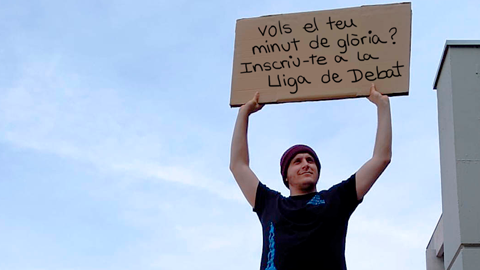 Vols el teu
minut de glòria?
Inscriu-te a la
Lliga de Debat